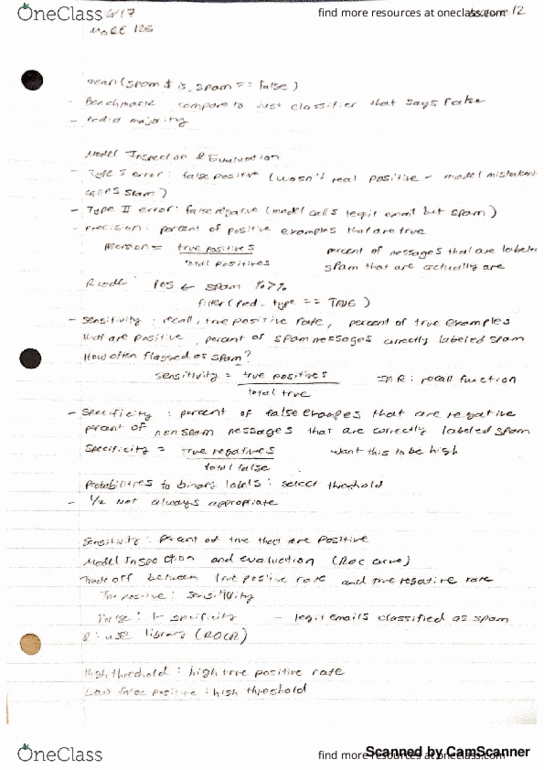 OneClass
find more resources at oneclass.com
12
4/17
126
mean(spam $ is_spam == False)
- Benchmark compare to just classifier that says False
- Predict majority
Model Inspection & Evaluation
- Type I error: false positive (wasn't real positive - model mistaken
calls spam)
- Type II error: false negative (model calls legit email but spam)
- Precision: percent of positive examples that are true
Precision = true positives percent of messages that are labeled
total positives spam that are actually are
R code: pos ← spam %>%
filter(pred. type == TRUE)
- Sensitivity: recall, true positive rate, percent of true examples
that are positive, percent of spam messages correctly labeled spam
How often flagged as spam?
sensitivity = true positives IN R: recall function
total true
- Specificity: percent of false examples that are negative
percent of nonspam messages that are correctly labeled spam
Specificity = true negatives want this to be high
total false
Probabilities to binary labels: select threshold
- 1/2 not always appropriate
Sensitivity: percent of true that are positive
Model Inspection and evaluation (ROC curve)
Trade off between true positive rate and true negative rate
True positive: sensitivity
False: 1- specificity - legit emails classified as spam
R: use library (ROCR)
High threshold: high true positive rate
Low false positive: high threshold
OneClass
find more resources at oneclass.com
Scanned by CamScanner